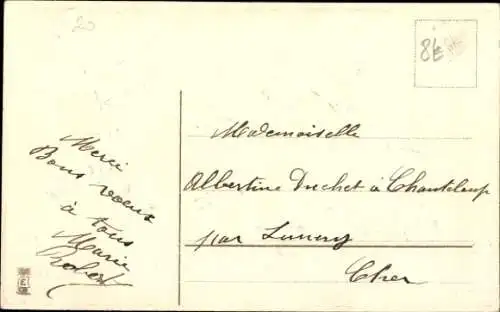 20
8€
Merci
Bons voeux
à tous
Marie
Robert
Mademoiselle
Albertine Duchet à Chanteloup
par Lunery
Cher